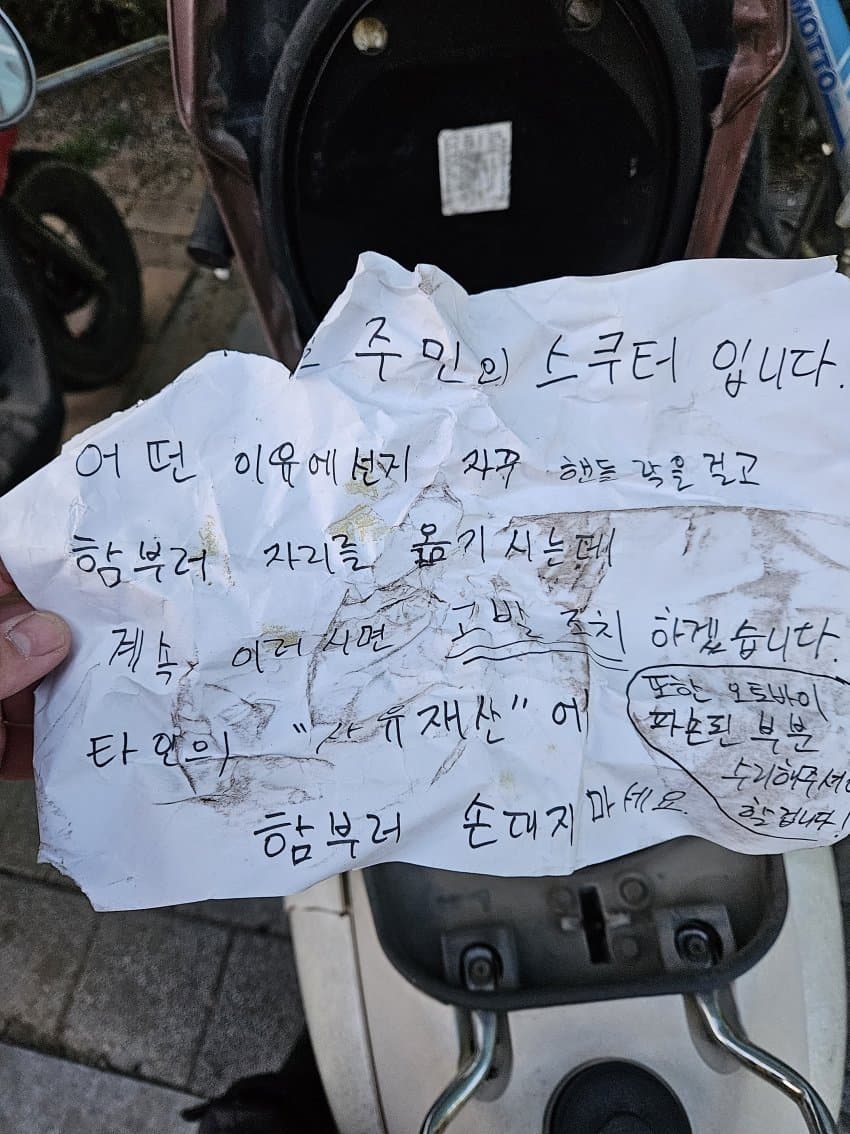 주민의 스쿠터 입니다.
어떤 이유에선지 자꾸 핸들락을 걸고
함부러 자리를 옮기시는데
계속 이러시면 고발 조치 하겠습니다.
타인의 "사유재산"에
함부러 손대지마세요.
또한 오토바이
파손된 부분
수리해주셔야
할겁니다!
MOTTO